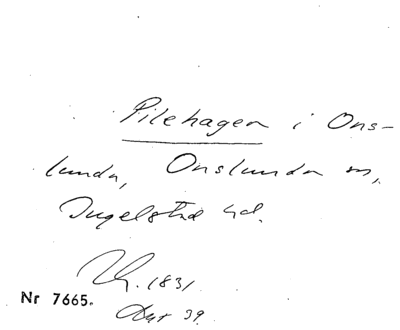 Pilehagen i Ons-
lunda, Onslunda sn,
Ingelstad hd.
1831
Nr 7665.
39.